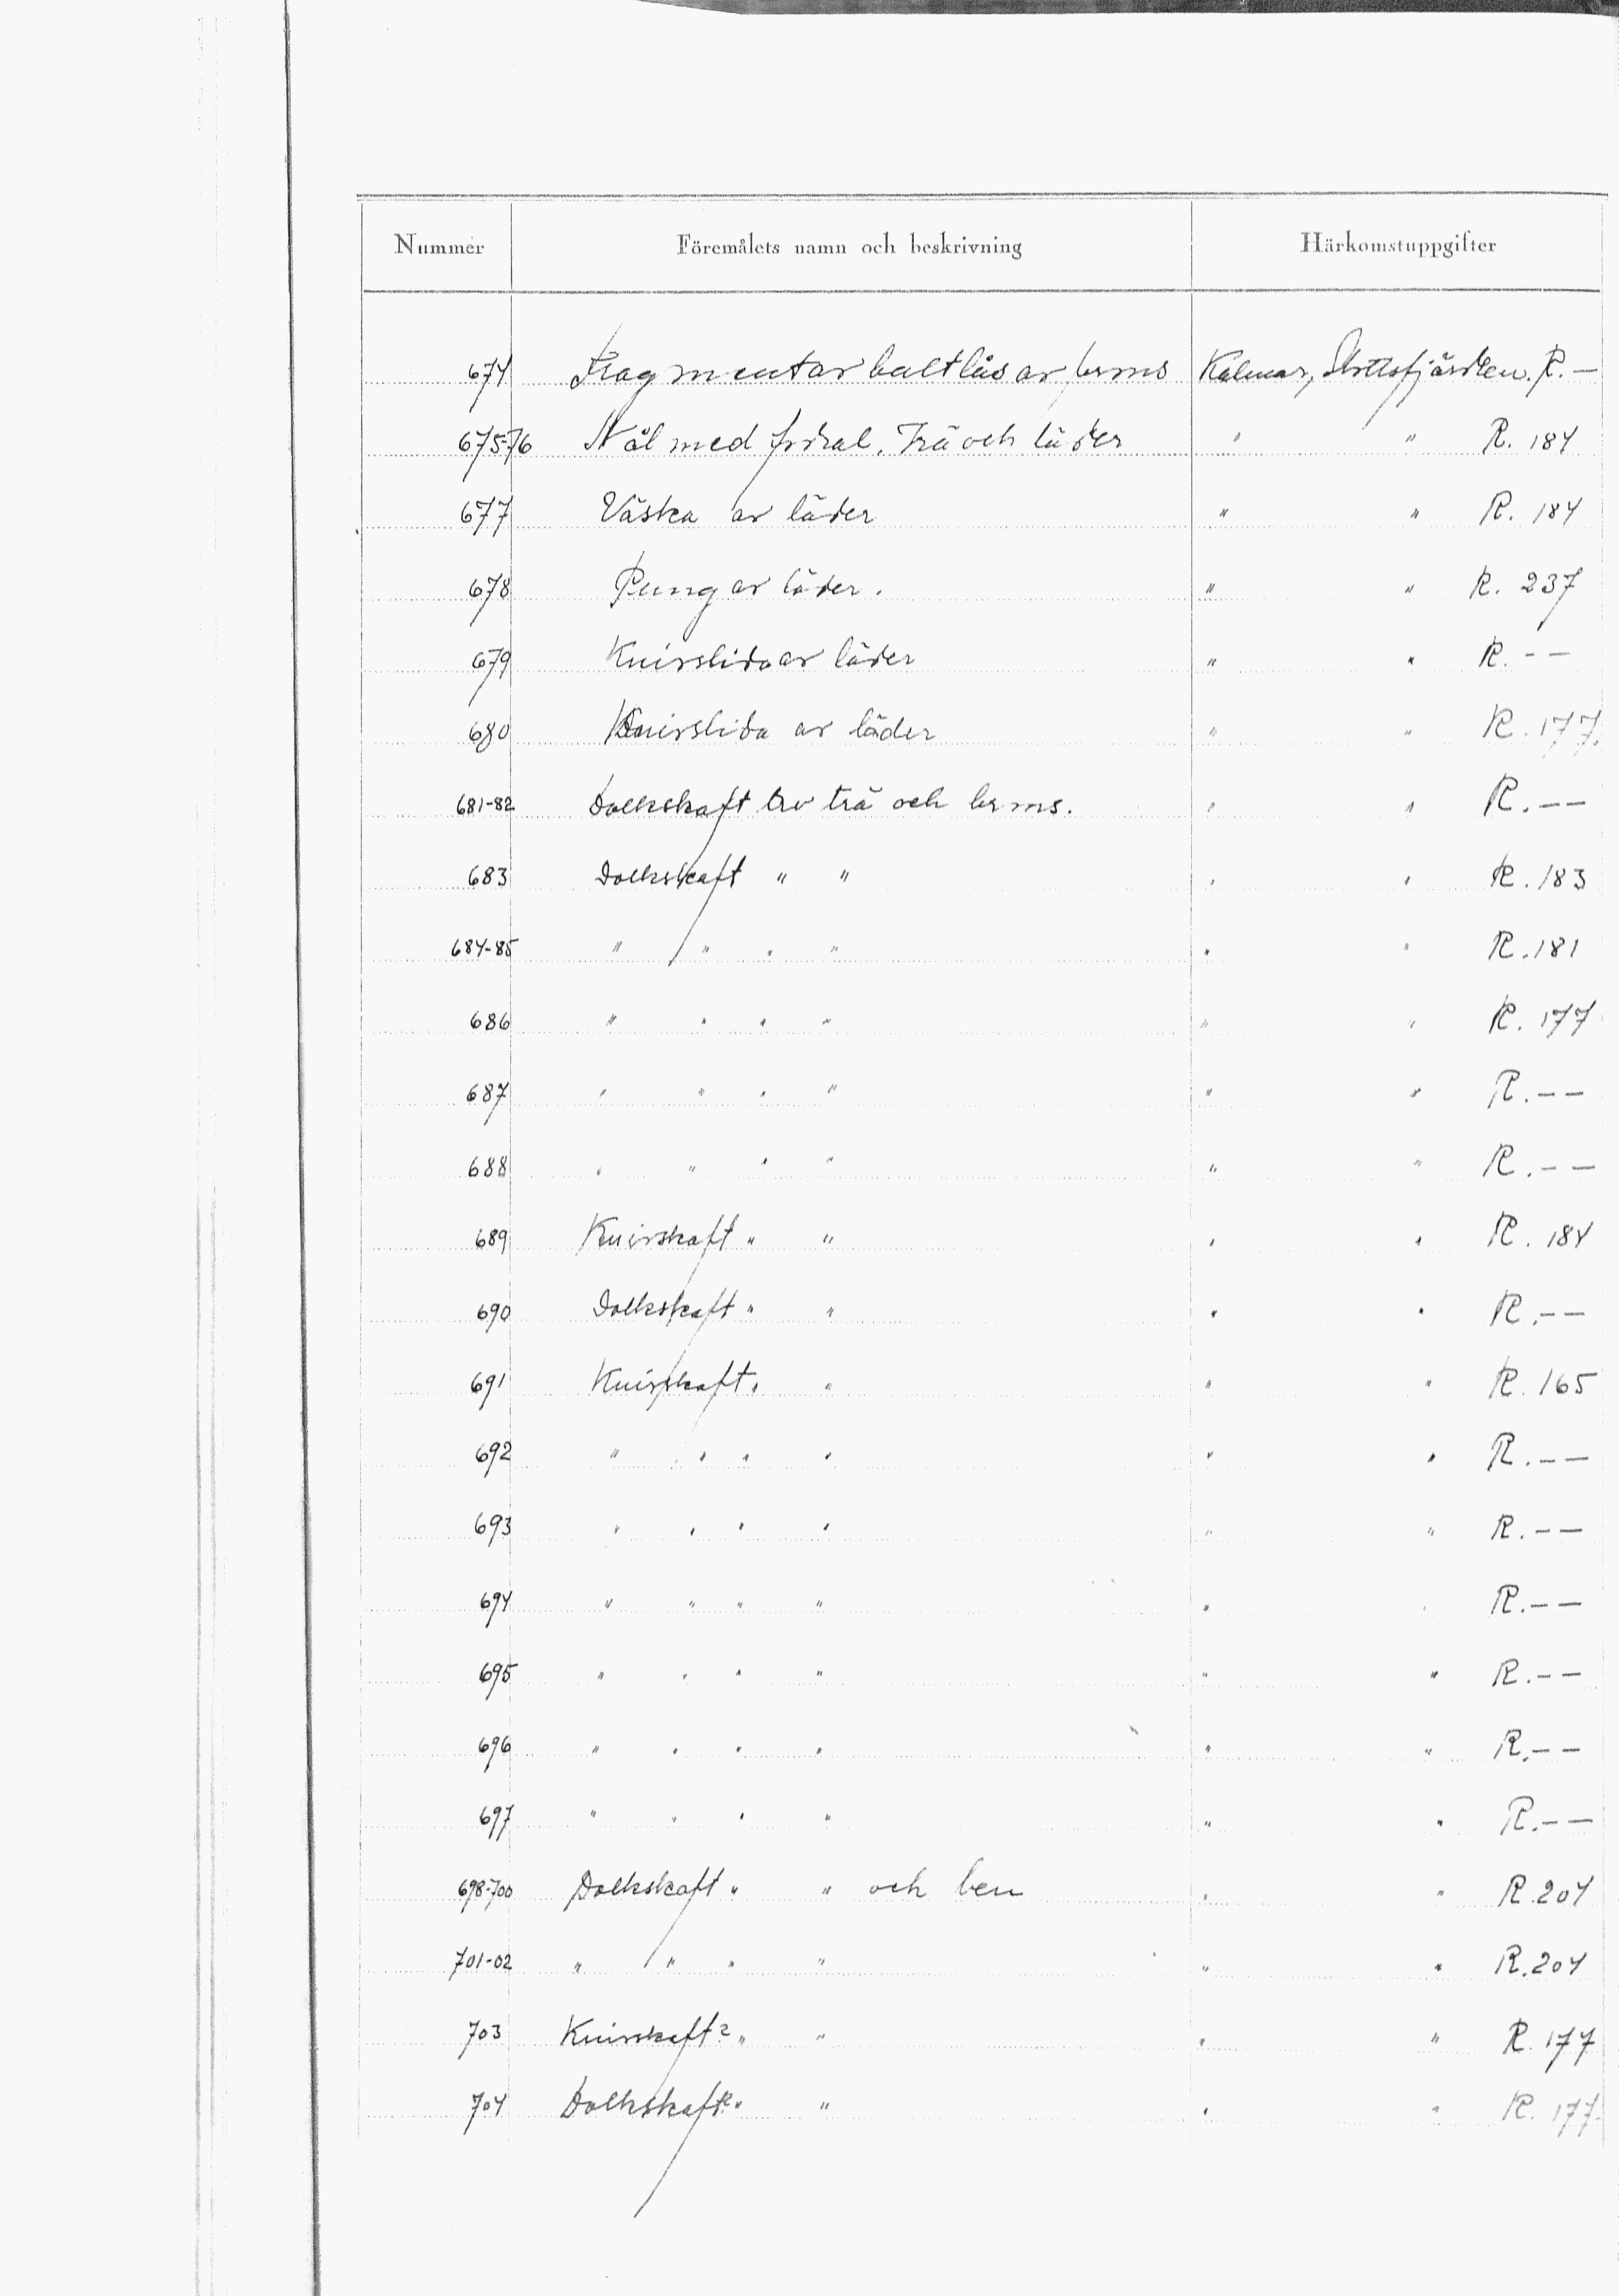 Nummer Föremålets namn och beskrivning Härkomstuppgifter
674 Fragmentar bultlås av brons Kalmar, Slottsfjärden. R. —
675-76 Nål med fodral. Trä och läder " " R. 184
677 Väska av läder " " R. 184
678 Pung av läder. " " R. 237
679 Knivslida av läder " " R. – –
680 Knivslida av läder " " R. 177.
681-82 Dolkskaft av trä och brons. " " R. – –
683 Dolkskaft " " " " R. 183
684-85 " " " " " " R. 181
686 " " " " " " R. 177
687 " " " " " " R. – –
688 " " " " " " R. – –
689 Knivskaft " " " " R. 184
690 Dolkskaft " " " " R. – –
691 Knivskaft " " " " R. 165
692 " " " " " " R. – –
693 " " " " " " R. – –
694 " " " " " " R. – –
695 " " " " " " R. – –
696 " " " " " " R. – –
697 " " " " " " R. – –
698-700 Dolkskaft " " och ben " " R. 204
701-02 " " " " " " R. 204
703 Knivskaft? " " " " R. 177
704 Dolkskaft? " " " " R. 177.